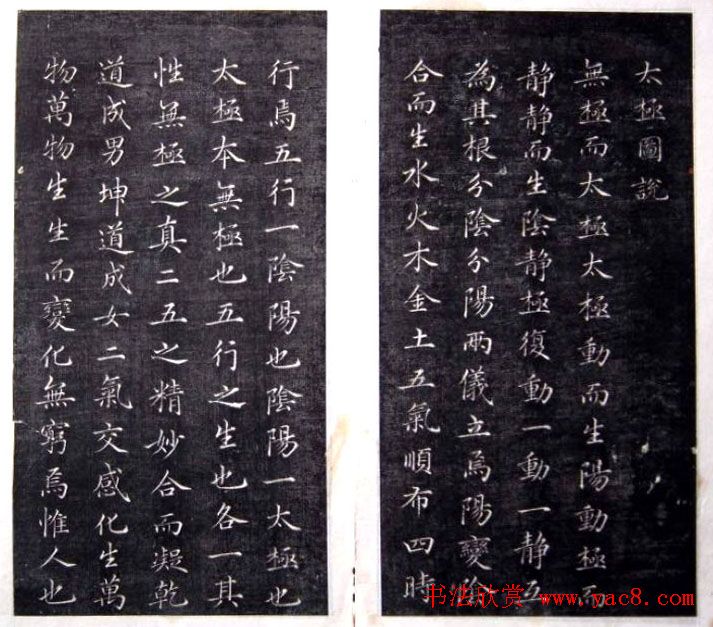 太極圖說
無極而太極太極動而生陽動極而
静静而生陰静極復動一動一静互
為其根分陰分陽兩儀立焉陽變陰
合而生水火木金土五氣順布四時
行焉五行一陰陽也陰陽一太極也
太極本無極也五行之生也各一其
性無極之真二五之精妙合而凝乾
道成男坤道成女二氣交感化生萬
物萬物生生而變化無窮焉惟人也
书法欣赏 www.yac8.com